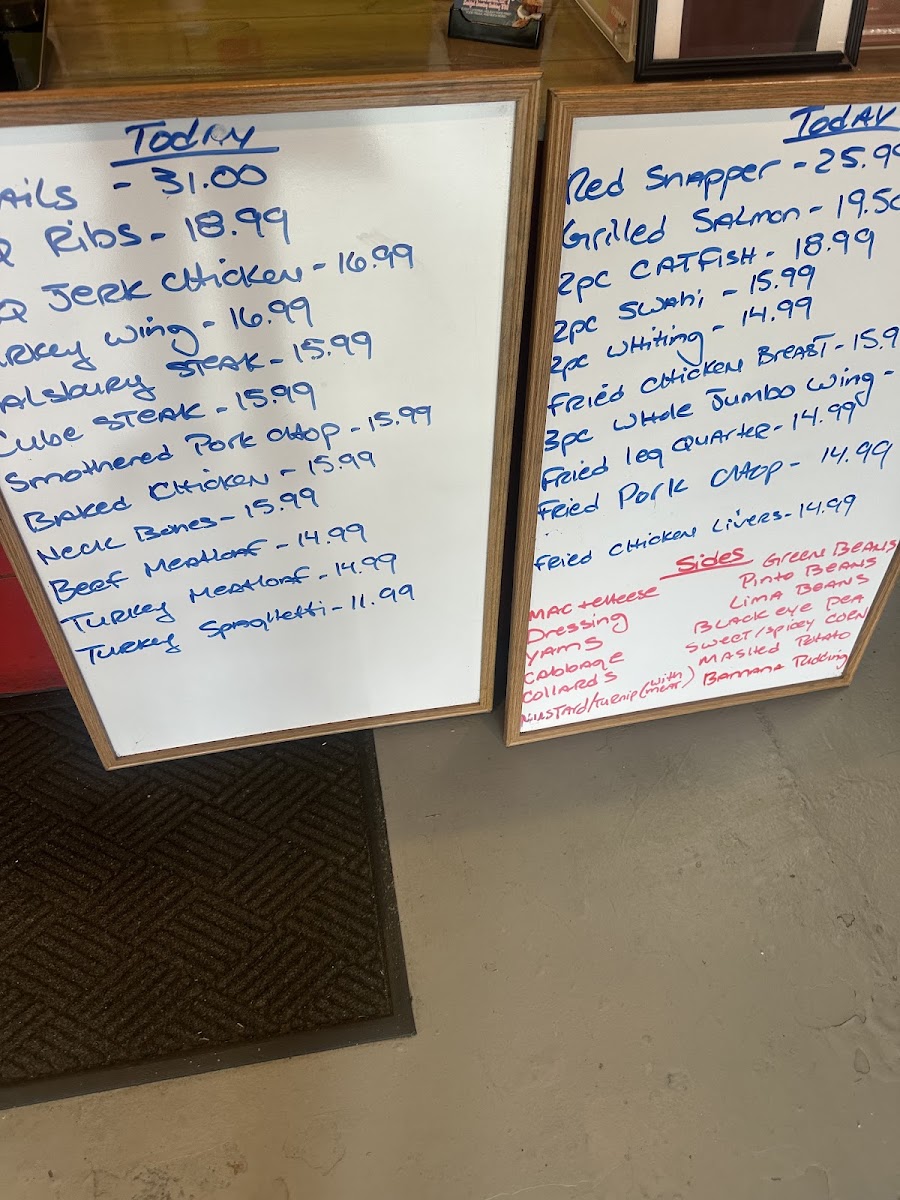 Today
ails - 31.00
Q Ribs - 18.99
Q Jerk Chicken - 16.99
rkey wing - 16.99
alsbury Steak - 15.99
Cube Steak - 15.99
Smothered Pork Chop - 15.99
Baked Chicken - 15.99
Neck Bones - 15.99
Beef Meatloaf - 14.99
Turkey Meatloaf - 14.99
Turkey Spaghetti - 11.99
Today
Red Snapper - 25.99
Grilled Salmon - 19.50
2pc Catfish - 18.99
2pc Swahi - 15.99
2pc Whiting - 14.99
Fried Chicken Breast - 15.9
3pc Whole Jumbo Wing -
Fried leg Quarter - 14.99
Fried Pork Chop - 14.99
Fried Chicken Livers - 14.99
Sides
Mac + cheese
Dressing
Yams
Cabbage
Collards
Mustard/Turnip (with meat)
Green Beans
Pinto Beans
Lima Beans
Black eye Pea
Sweet/spicey Corn
Mashed Potato
Banana Pudding